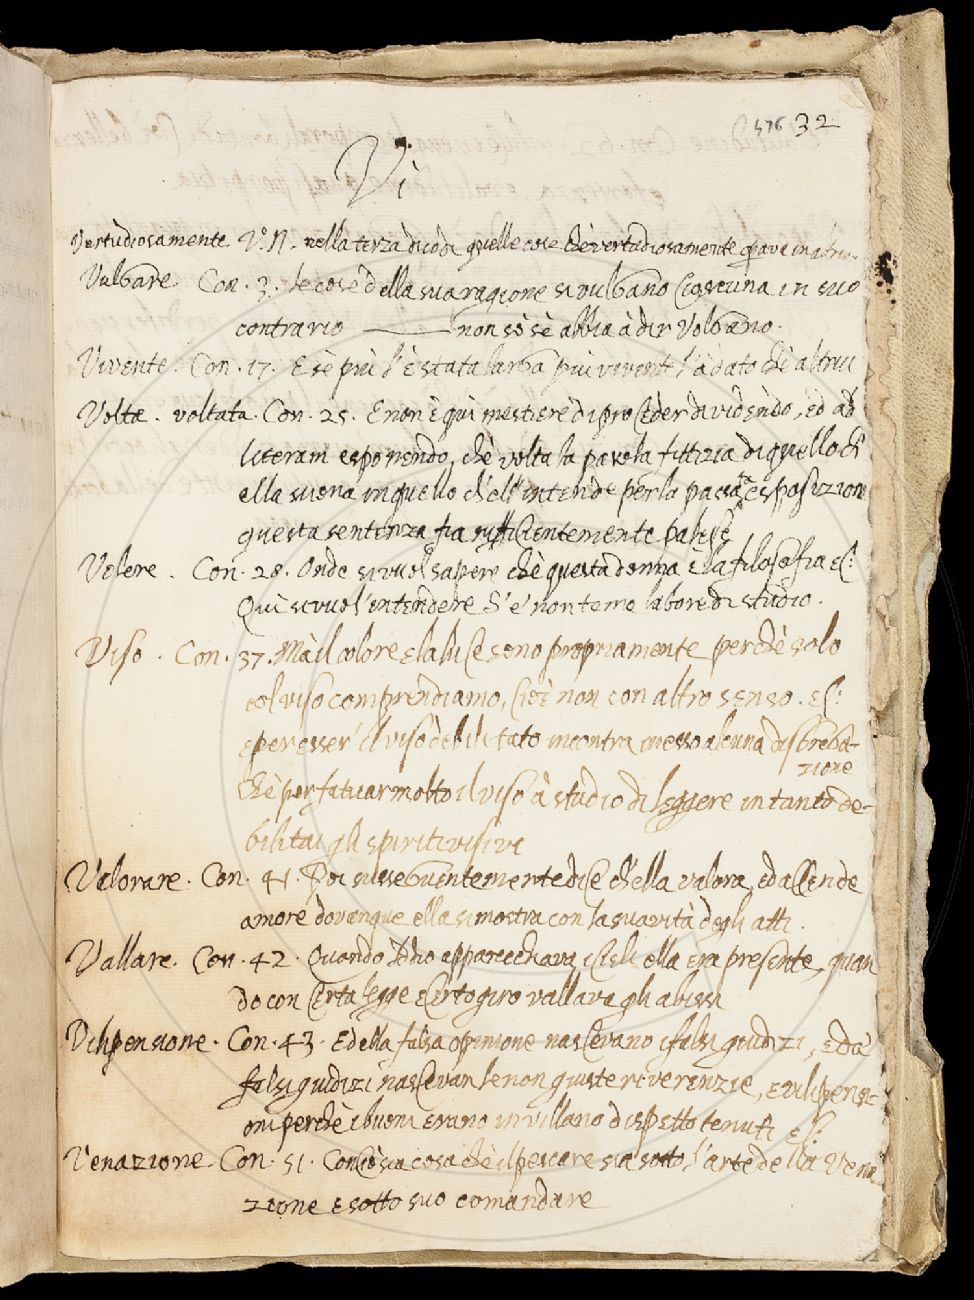 576 32
Vi
Vertudiosamente V.N. nella terza dico di quelle cose che vertudiosamente opava in altrui
Vulgare Con. 3. le cose della sua ragione si vulgano ciascuna in suo
contrario non sò sè abbia à dir Volgano.
Vivente. Con. 17. E sè più l'è stata larga più vivente l'à dato chè altrui
Volte. voltata. Con. 25. E non è quì mestiere di procieder dividendo, ed ad
literam esponendo, chè volta la parola fittizia di quello ch'
ella suona in quello ch'ell'intende per la passata esposizione
questa sentenza fia sufficientemente palese
Volere. Con. 28. Onde si vuol sapere chè questa donna è la filosofia ec:
Quì si vuol'intendere S'e' non teme labore di studio.
Viso. Con. 37. Mà il colore e la luce sono propriamente perchè solo
col viso comprendiamo, cioè non con altro senso. ec:
e per esser' il viso debilitato incontra in esso alcuna disgrega-
zione
chè per fatuar molto il viso à studio di leggere in tanto de-
bilitai gli spiriti visivi
Valorare. Con. 41. Poi sussequintemente dice ch'ella valora, ed accende
amore dovunque ella si mostra con la suavità degli atti.
Vallare. Con. 42. Quando Iddio apparecchiava i cieli ella era presente, quan
do con certa legge e certo giro vallava gli abissi
Vilipensione. Con. 43. E della falsa oppinione nascievano i falsi giudizi, e da
falsi giudizi nascievan le non giuste riverenzie, e vilipensi-
oni perchè i buoni erano in villano dispetto tenuti ec:
Venazione. Con. 51. Conciò sia cosa chè il pescare sia sotto l'arte della Vena
zione e sotto suo comandare